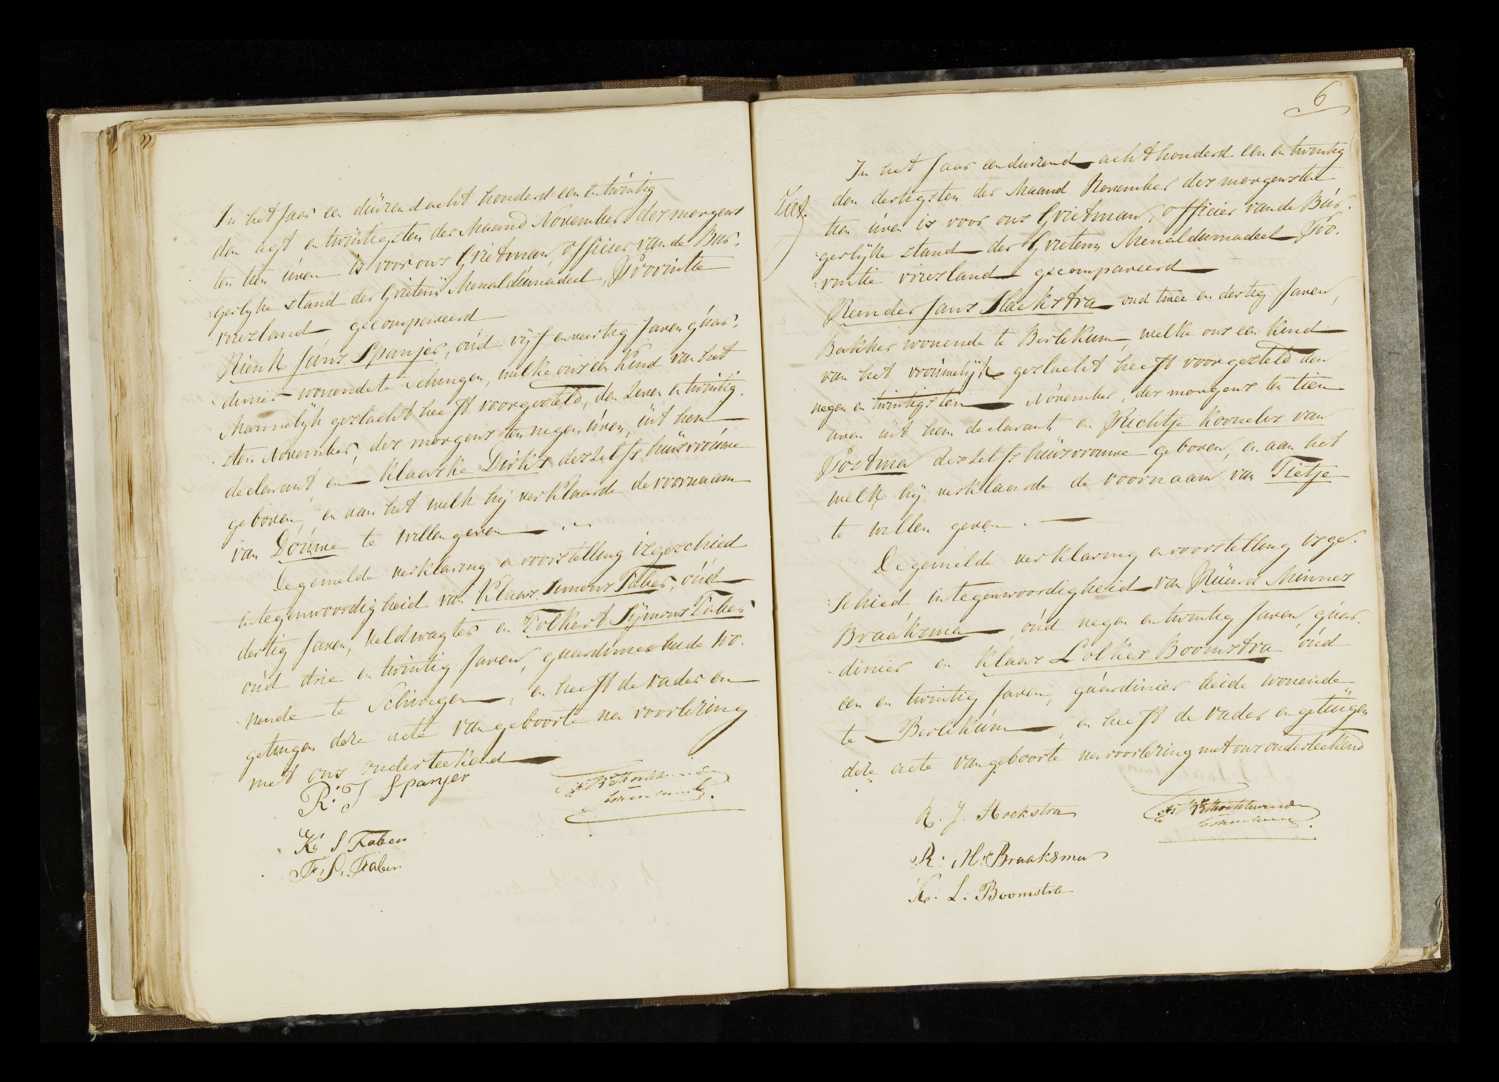 In het Jaar een duizend acht honderd een en twintig
den agt en twintigsten der Maand November der morgens
ten tien uren is voor ons Grietman, officier van de Bur-
gerlyke stand der Grietenij Menaldumadeel, Provintie
vriesland gecompareerd
Rienk Jans Spanjer, oud vijf en veertig Jaren gaar-
denier wonende te Schingen, welke ons een Kind van het
Mannelijk geslacht heeft voorgesteld, den zeven en twintig-
sten November, der morgens ten negen uren, uit hem
declarant en Klaaske Dirks deszelfs huisvrouwe
geboren, en aan het welk hij verklaarde de voornaam
van Douwe te willen geven
De gemelde verklaring en voorstelling is geschied
in tegenwoordigheid van Klaas Simons Faber, oud
dertig Jaren, veldwagter en Folkert Sijmons Faber
oud drie en twintig Jaren, gaardenier beide wo-
nende te Schingen, en heeft de vader en
getuigen deze acte van geboorte na voorlezing
met ons ondertekend
R. J Spanjer
K S Faber
F. S. Faber
6
In het Jaar een duizend acht honderd een en twintig
den dertigsten der Maand November der morgens ten
tien uren is voor ons Grietman, officier van de Bur-
gerlyke stand der Grietenij Menaldumadeel Pro-
vintie vriesland gecompareerd
Reinder Jans Hoekstra oud twee en dertig Jaren,
Bakker wonende te Berlikum, welke ons een kind
van het vrouwelijk geslacht heeft voorgesteld den
negen en twintigsten November, der morgens ten tien
uren uit hem declarant en Rechtje Kornelis van
Postma deszelfs huisvrouwe geboren, en aan het
welk hij verklaarde de voornaam van Tietje
te willen geven.
De gemelde verklaring en voorstelling is ge-
schied in tegenwoordigheid van Ruurd Minnes
Braaksma, oud negen en twintig Jaren, gaar-
dinier en Klaas Lolkes Boomstra oud
een en twintig Jaren, gaardinier beide wonende
te Berlikum, en heeft de vader en getuigen
deze acte van geboorte na voorlezing met ons ondertekend
R. J. Hoekstra
R. M. Braaksma
K. L. Boomstra